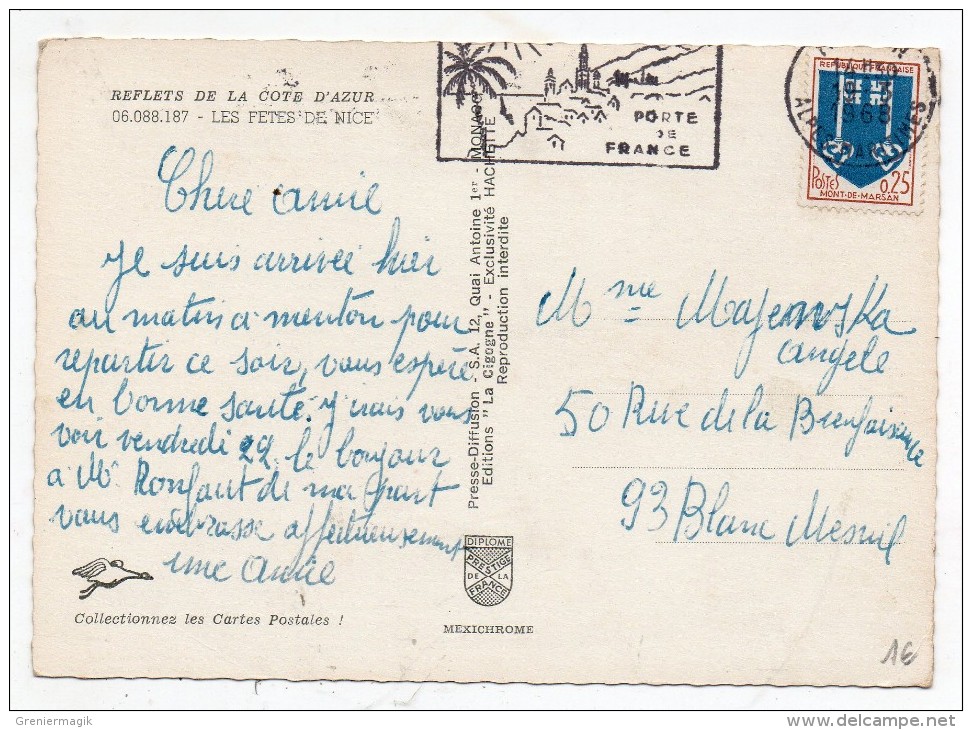 REFLETS DE LA COTE D'AZUR
06.088.187 - LES FETES DE NICE
Chere amie
Je suis arrivée hier
au matin a menton pour
repartir ce soir, vous espère
en bonne santé. J'irais vous
voir vendredi 22 le bonjour
a Mr Ronfaut de ma part
vous embrasse affectueusement
une amie
Collectionnez les Cartes Postales !
Presse-Diffusion - S.A. 12, Quai Antoine 1er - MONACO
Editions "La Cigogne" - Exclusivité HACHETTE
Reproduction interdite
DIPLOME
PRESTIGE
DE LA
FRANCE
MEXICHROME
PORTE
DE
FRANCE
1968
ALPES MARITIMES
REPUBLIQUE FRANCAISE
POSTES
0,25
MONT-DE-MARSAN
Mme Majewska
angele
50 Rue de la Bienfaisance
93 Blanc Mesnil
1€
Greniermagik
delcampe.net